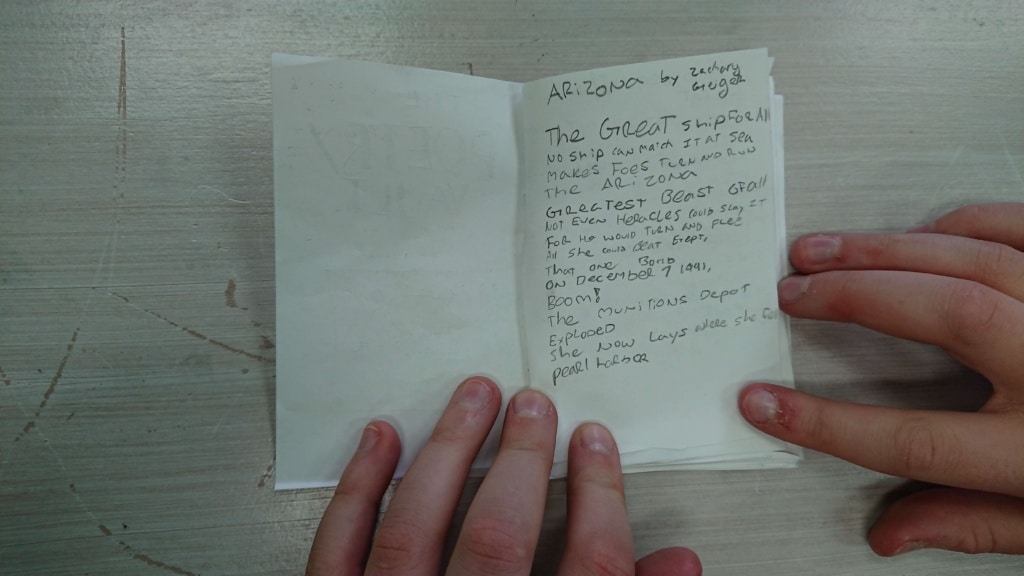 ARIZONA by Zachary
Geiger
The GREAT ship FOR All
NO Ship can match IT AT Sea
MAKES FOES TURN AND RUN
THE ARIZONA
GREATEST BEAST OF all
NOT EVEN HERACLES could slay IT
FOR HE WOULD TURN AND FLEE
All She could BEAT Exept,
THAT one Bomb
ON DECEMBER 7 1991,
BOOM!
The MUNITIONS DEPOT
EXPLODED
She NOW Lays where she
pearl harbor